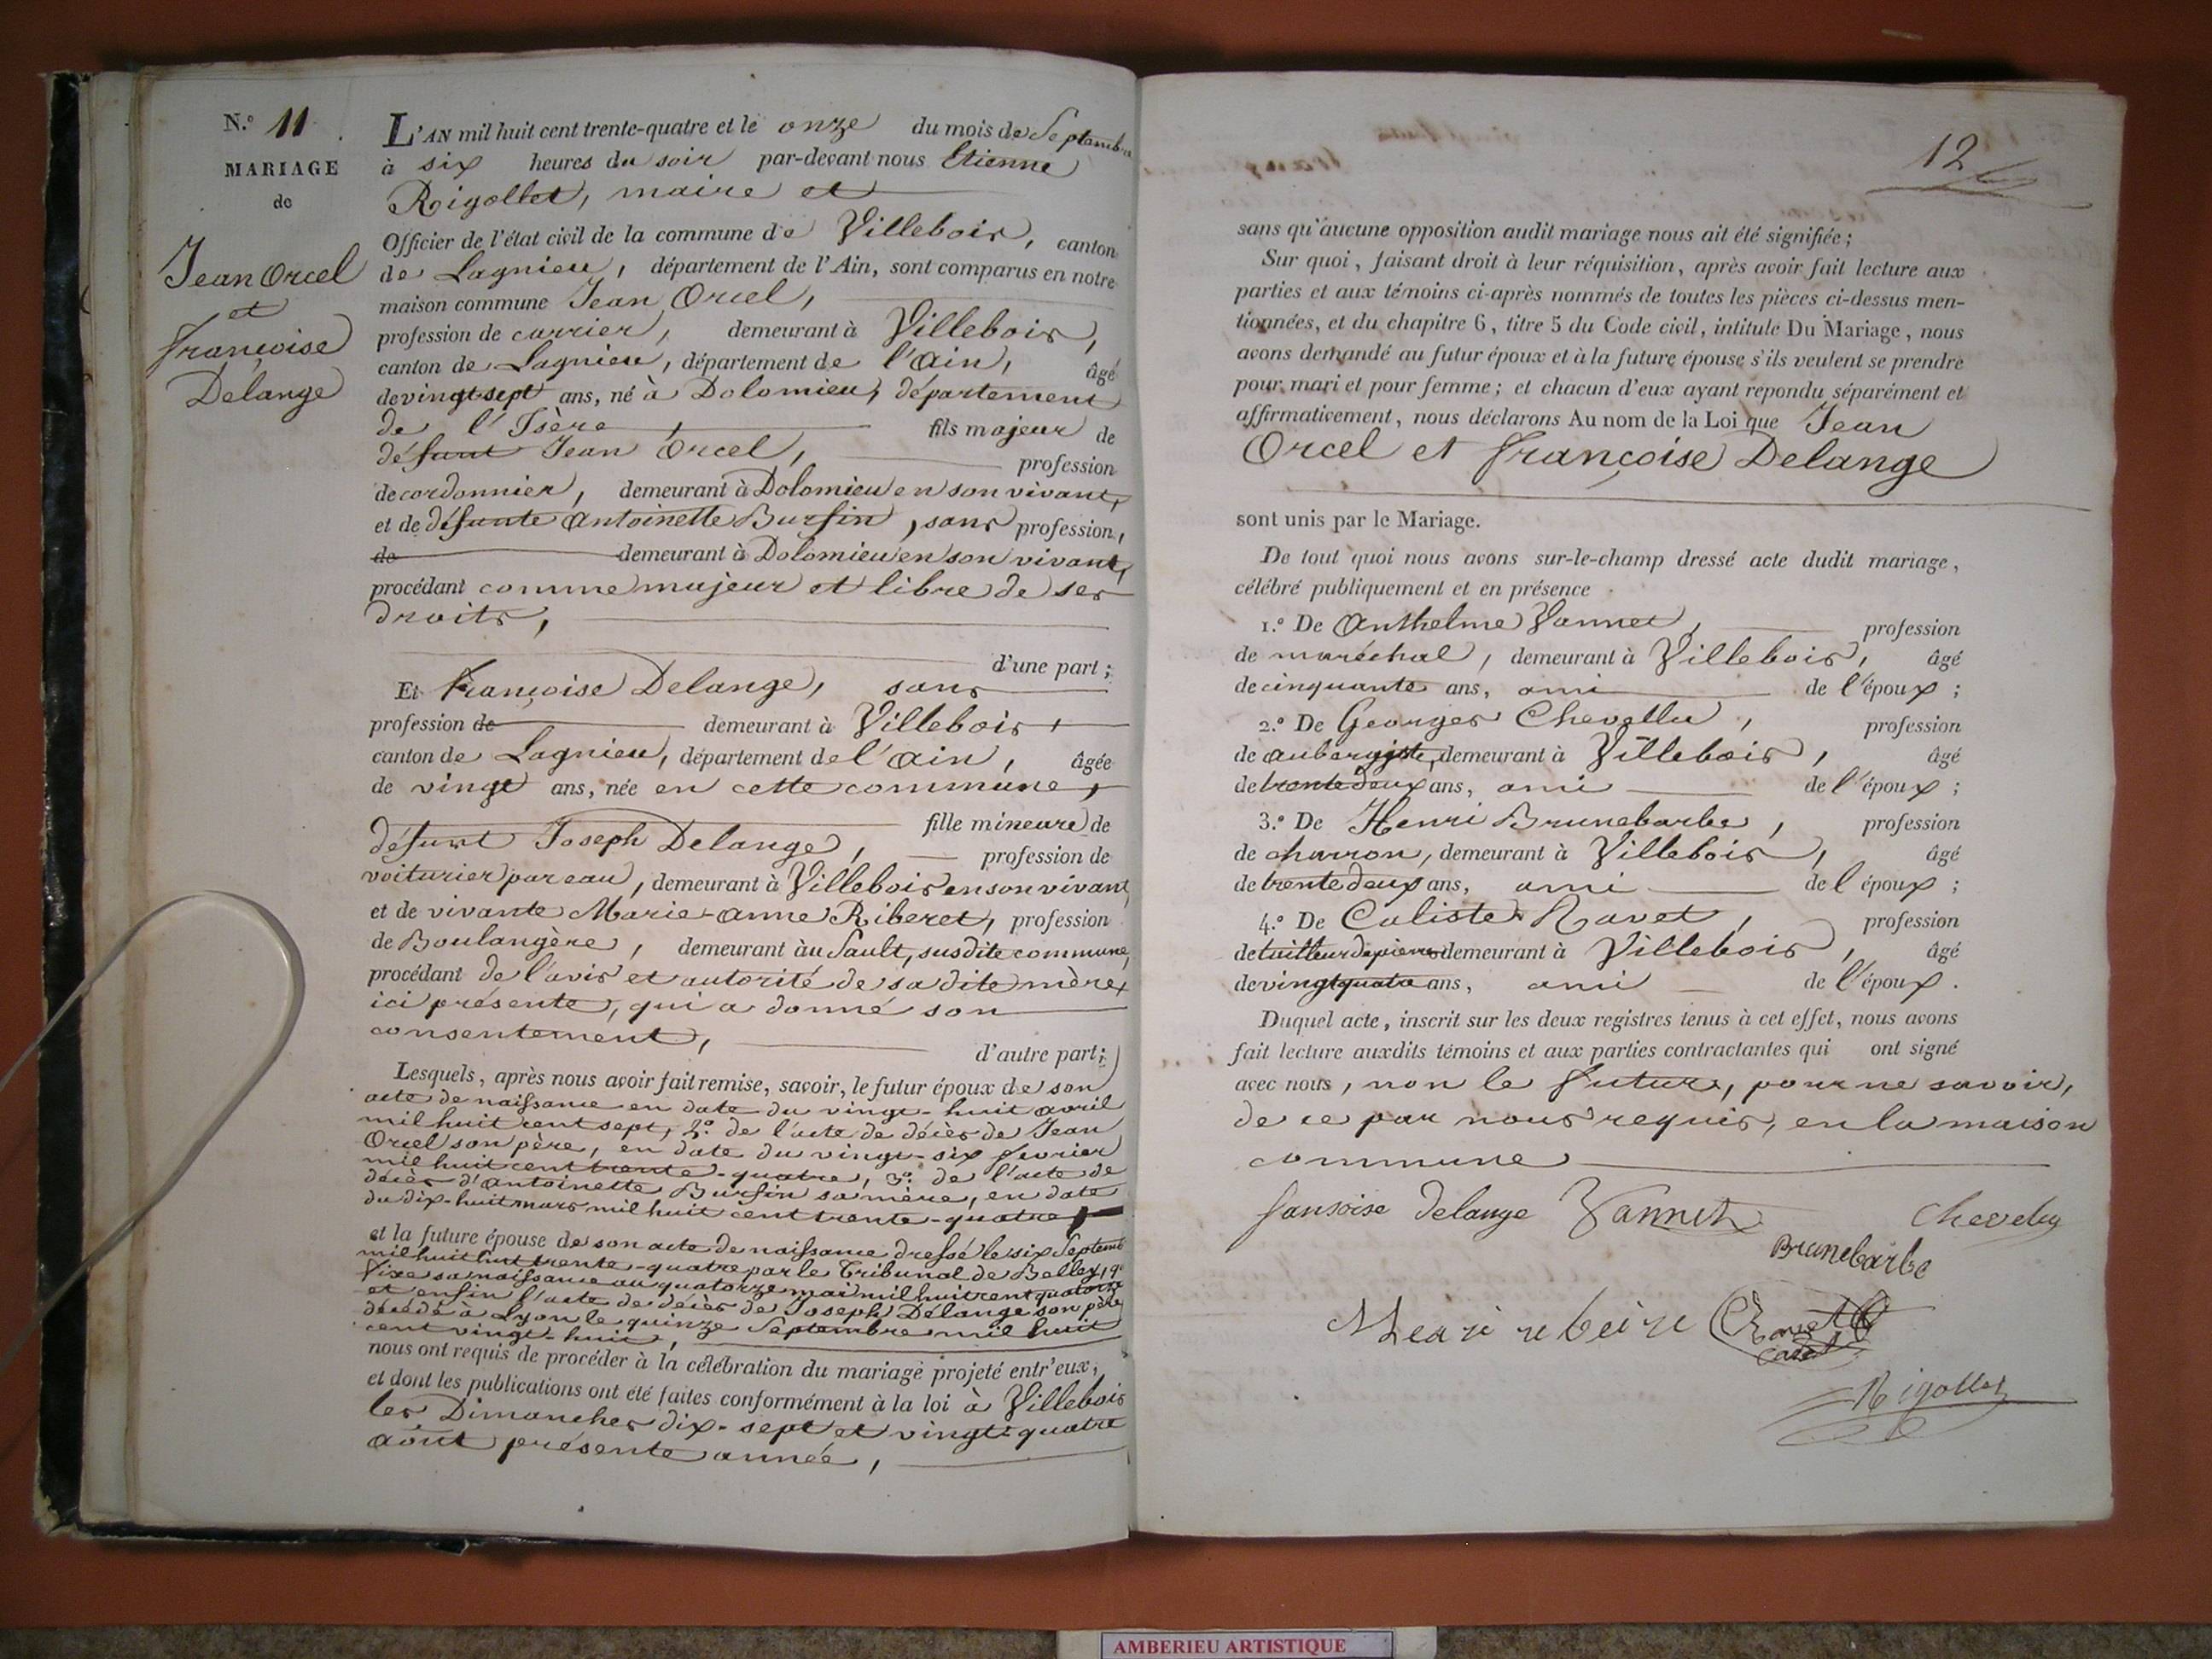 N.º 11
MARIAGE
de
Jean Orcel
et
françoise
Delange
L'AN mil huit cent trente-quatre et le onze du mois de Septembre
à six heures du soir par-devant nous Etienne
Rigollet, maire et
Officier de l'état civil de la commune de Villebois, canton
de Lagnieu, département de l'Ain, sont comparus en notre
maison commune Jean Orcel,
profession de carrier, demeurant à Villebois,
canton de Lagnieu, département de l'ain, âgé
de vingt-sept ans, né à Dolomieu, département
de l'Isère, fils majeur de
défunt Jean Orcel, profession
de cordonnier, demeurant à Dolomieu en son vivant,
et de défunte Antoinette Burfin, sans profession,
de demeurant à Dolomieu en son vivant,
procédant comme majeur et libre de ses
droits,
d'une part;
Et françoise Delange, sans
profession de demeurant à Villebois,
canton de Lagnieu, département de l'ain, âgée
de vingt ans, née en cette commune,
fille mineure de
défunt Joseph Delange, profession de
voiturier par eau, demeurant à Villebois en son vivant,
et de vivante Marie-anne Riberet, profession
de Boulangère, demeurant au Sault, susdite commune,
procédant de l'avis et autorité de sa dite mère,
ici présente, qui a donné son
consentement,
d'autre part;
Lesquels, après nous avoir fait remise, savoir, le futur époux de son
acte de naissance en date du vingt-huit avril
mil huit cent sept, 2.º de l'acte de décès de Jean
Orcel son père, en date du vingt-six fevrier
mil huit cent trente-quatre, 3.º de l'acte de
décès d'antoinette Burfin sa mère, en date
du dix-huit mars mil huit cent trente-quatre,
et la future épouse de son acte de naissance dressé le six Septemb
mil huit cent trente-quatre par le Tribunal de Belley, q.
fixe sa naissance au quatorze mai mil huit cent quatorze
et enfin l'acte de décès de Joseph Delange son père
décédé à Lyon le quinze Septembre mil huit
cent vingt-huit,
nous ont requis de procéder à la célébration du mariage projeté entr'eux,
et dont les publications ont été faites conformément à la loi à Villebois
les Dimanches dix-sept et vingt-quatre
août présente année,
12
sans qu'aucune opposition audit mariage nous ait été signifiée;
Sur quoi, faisant droit à leur réquisition, après avoir fait lecture aux
parties et aux témoins ci-après nommés de toutes les pièces ci-dessus men-
tionnées, et du chapitre 6, titre 5 du Code civil, intitule Du Mariage, nous
avons demandé au futur époux et à la future épouse s'ils veulent se prendre
pour mari et pour femme; et chacun d'eux ayant repondu séparément et
affirmativement, nous déclarons Au nom de la Loi que Jean
Orcel et françoise Delange
sont unis par le Mariage.
De tout quoi nous avons sur-le-champ dressé acte dudit mariage,
célébré publiquement et en présence
1.º De Anthelme Vannet, profession
de maréchal, demeurant à Villebois, âgé
de cinquante ans, ami de l'époux;
2.º De Georges Chevellu, profession
de aubergiste, demeurant à Villebois, âgé
de trente deux ans, ami de l'époux;
3.º De Henri Brunebarbe, profession
de charron, demeurant à Villebois, âgé
de trente deux ans, ami de l'époux;
4.º De Caliste Ravet, profession
de tailleur de pierres demeurant à Villebois, âgé
de vingt quatre ans, ami de l'époux.
Duquel acte, inscrit sur les deux registres tenus à cet effet, nous avons
fait lecture auxdits témoins et aux parties contractantes qui ont signé
avec nous, non le futur, pour ne savoir,
de ce par nous requis, en la maison
commune
fansoise delange Vannet
Brunebarbe
Ravet
Cadet
Rigollet
AMBERIEU ARTISTIQUE